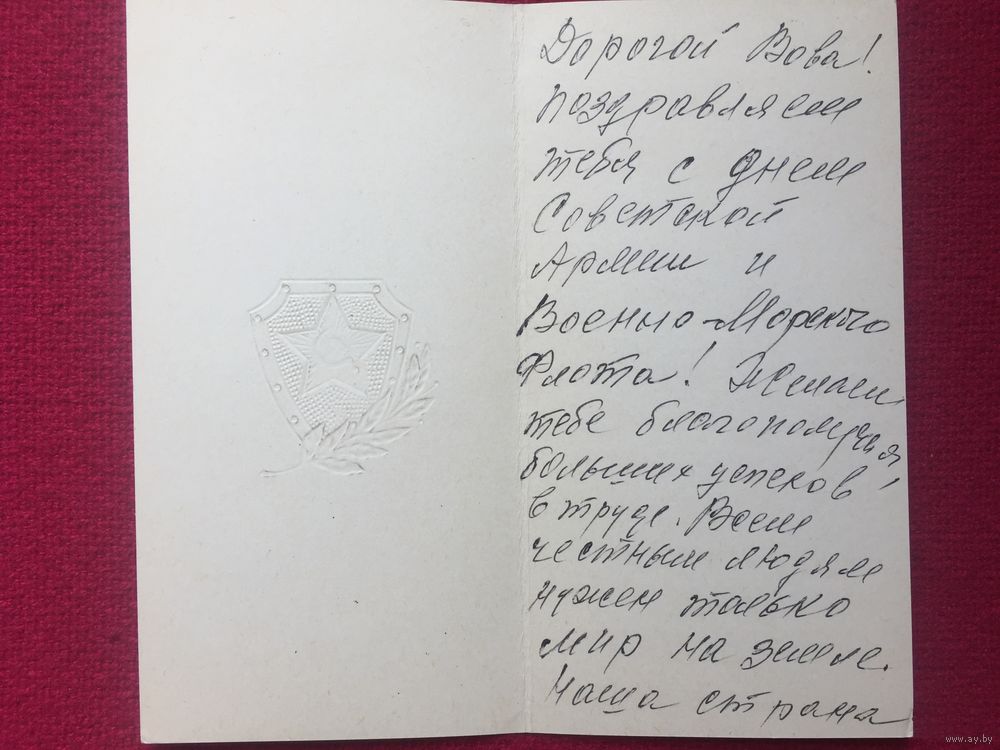 Дорогой Вова!
Поздравляем
тебя с днем
Советской
Армии и
Военно-Морского
Флота! Желаем
тебе благополучия,
больших успехов
в труде. Всем
честным людям
нужен только
мир на земле.
Наша страна
www.ay.by